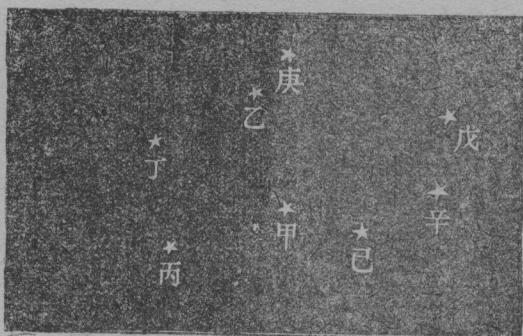 庚
乙
戊
丁
辛
甲
己
丙